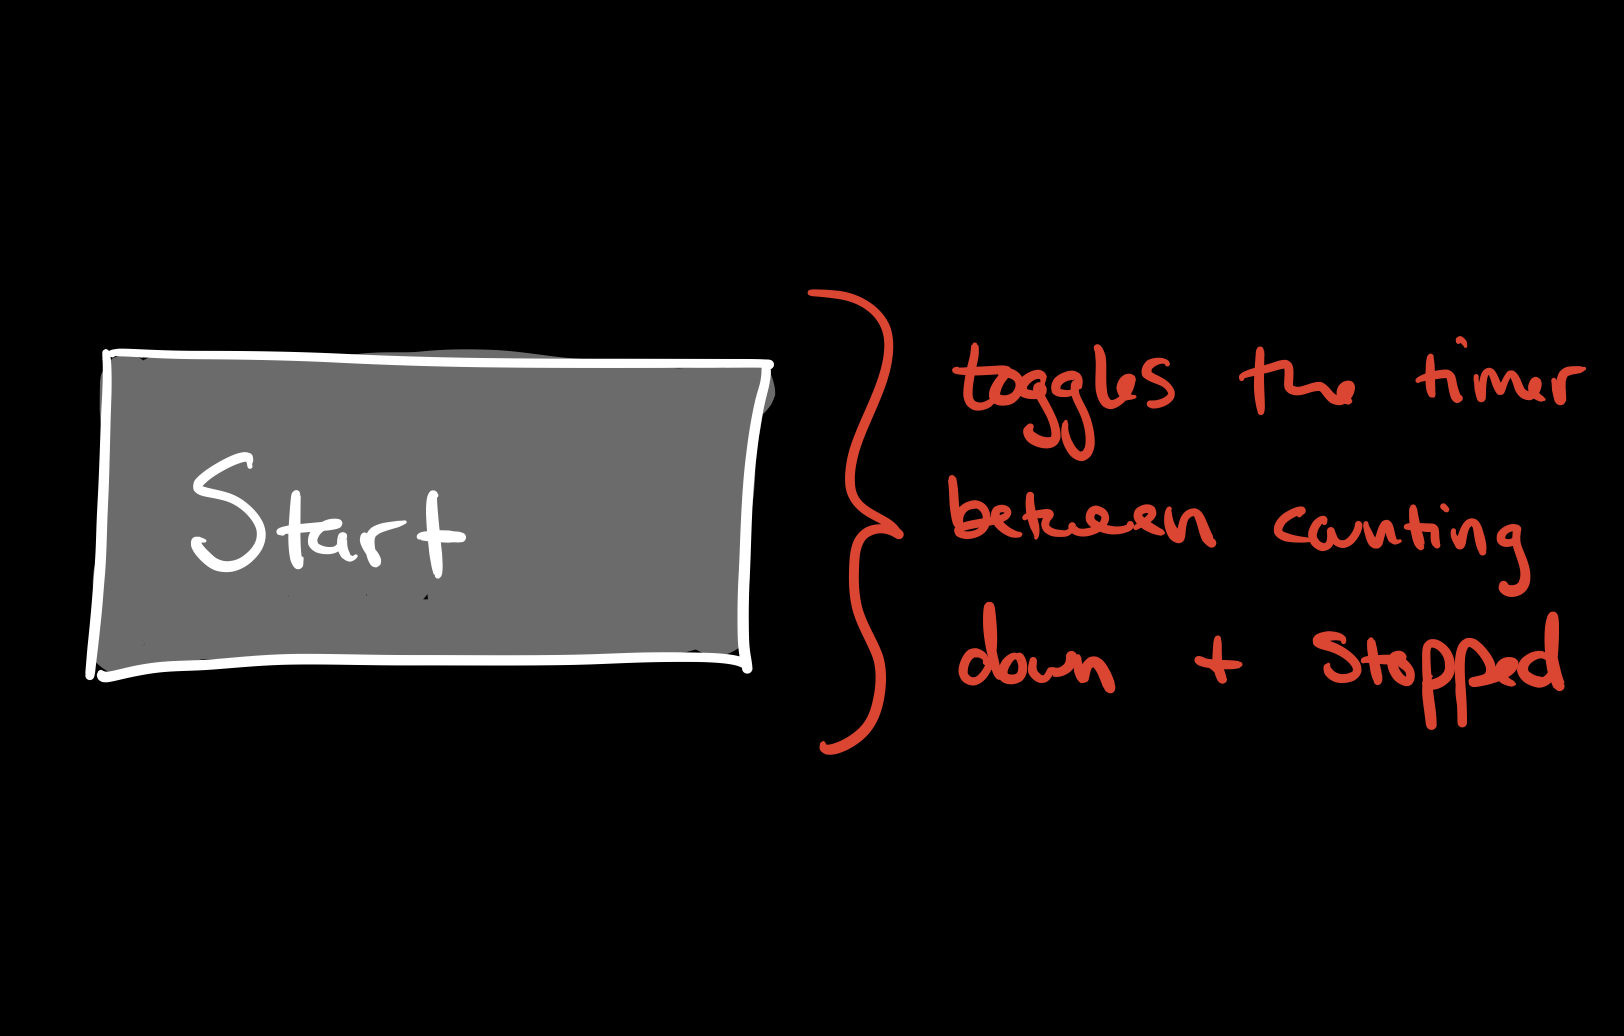 Start
toggles the timer
between counting
down + stopped